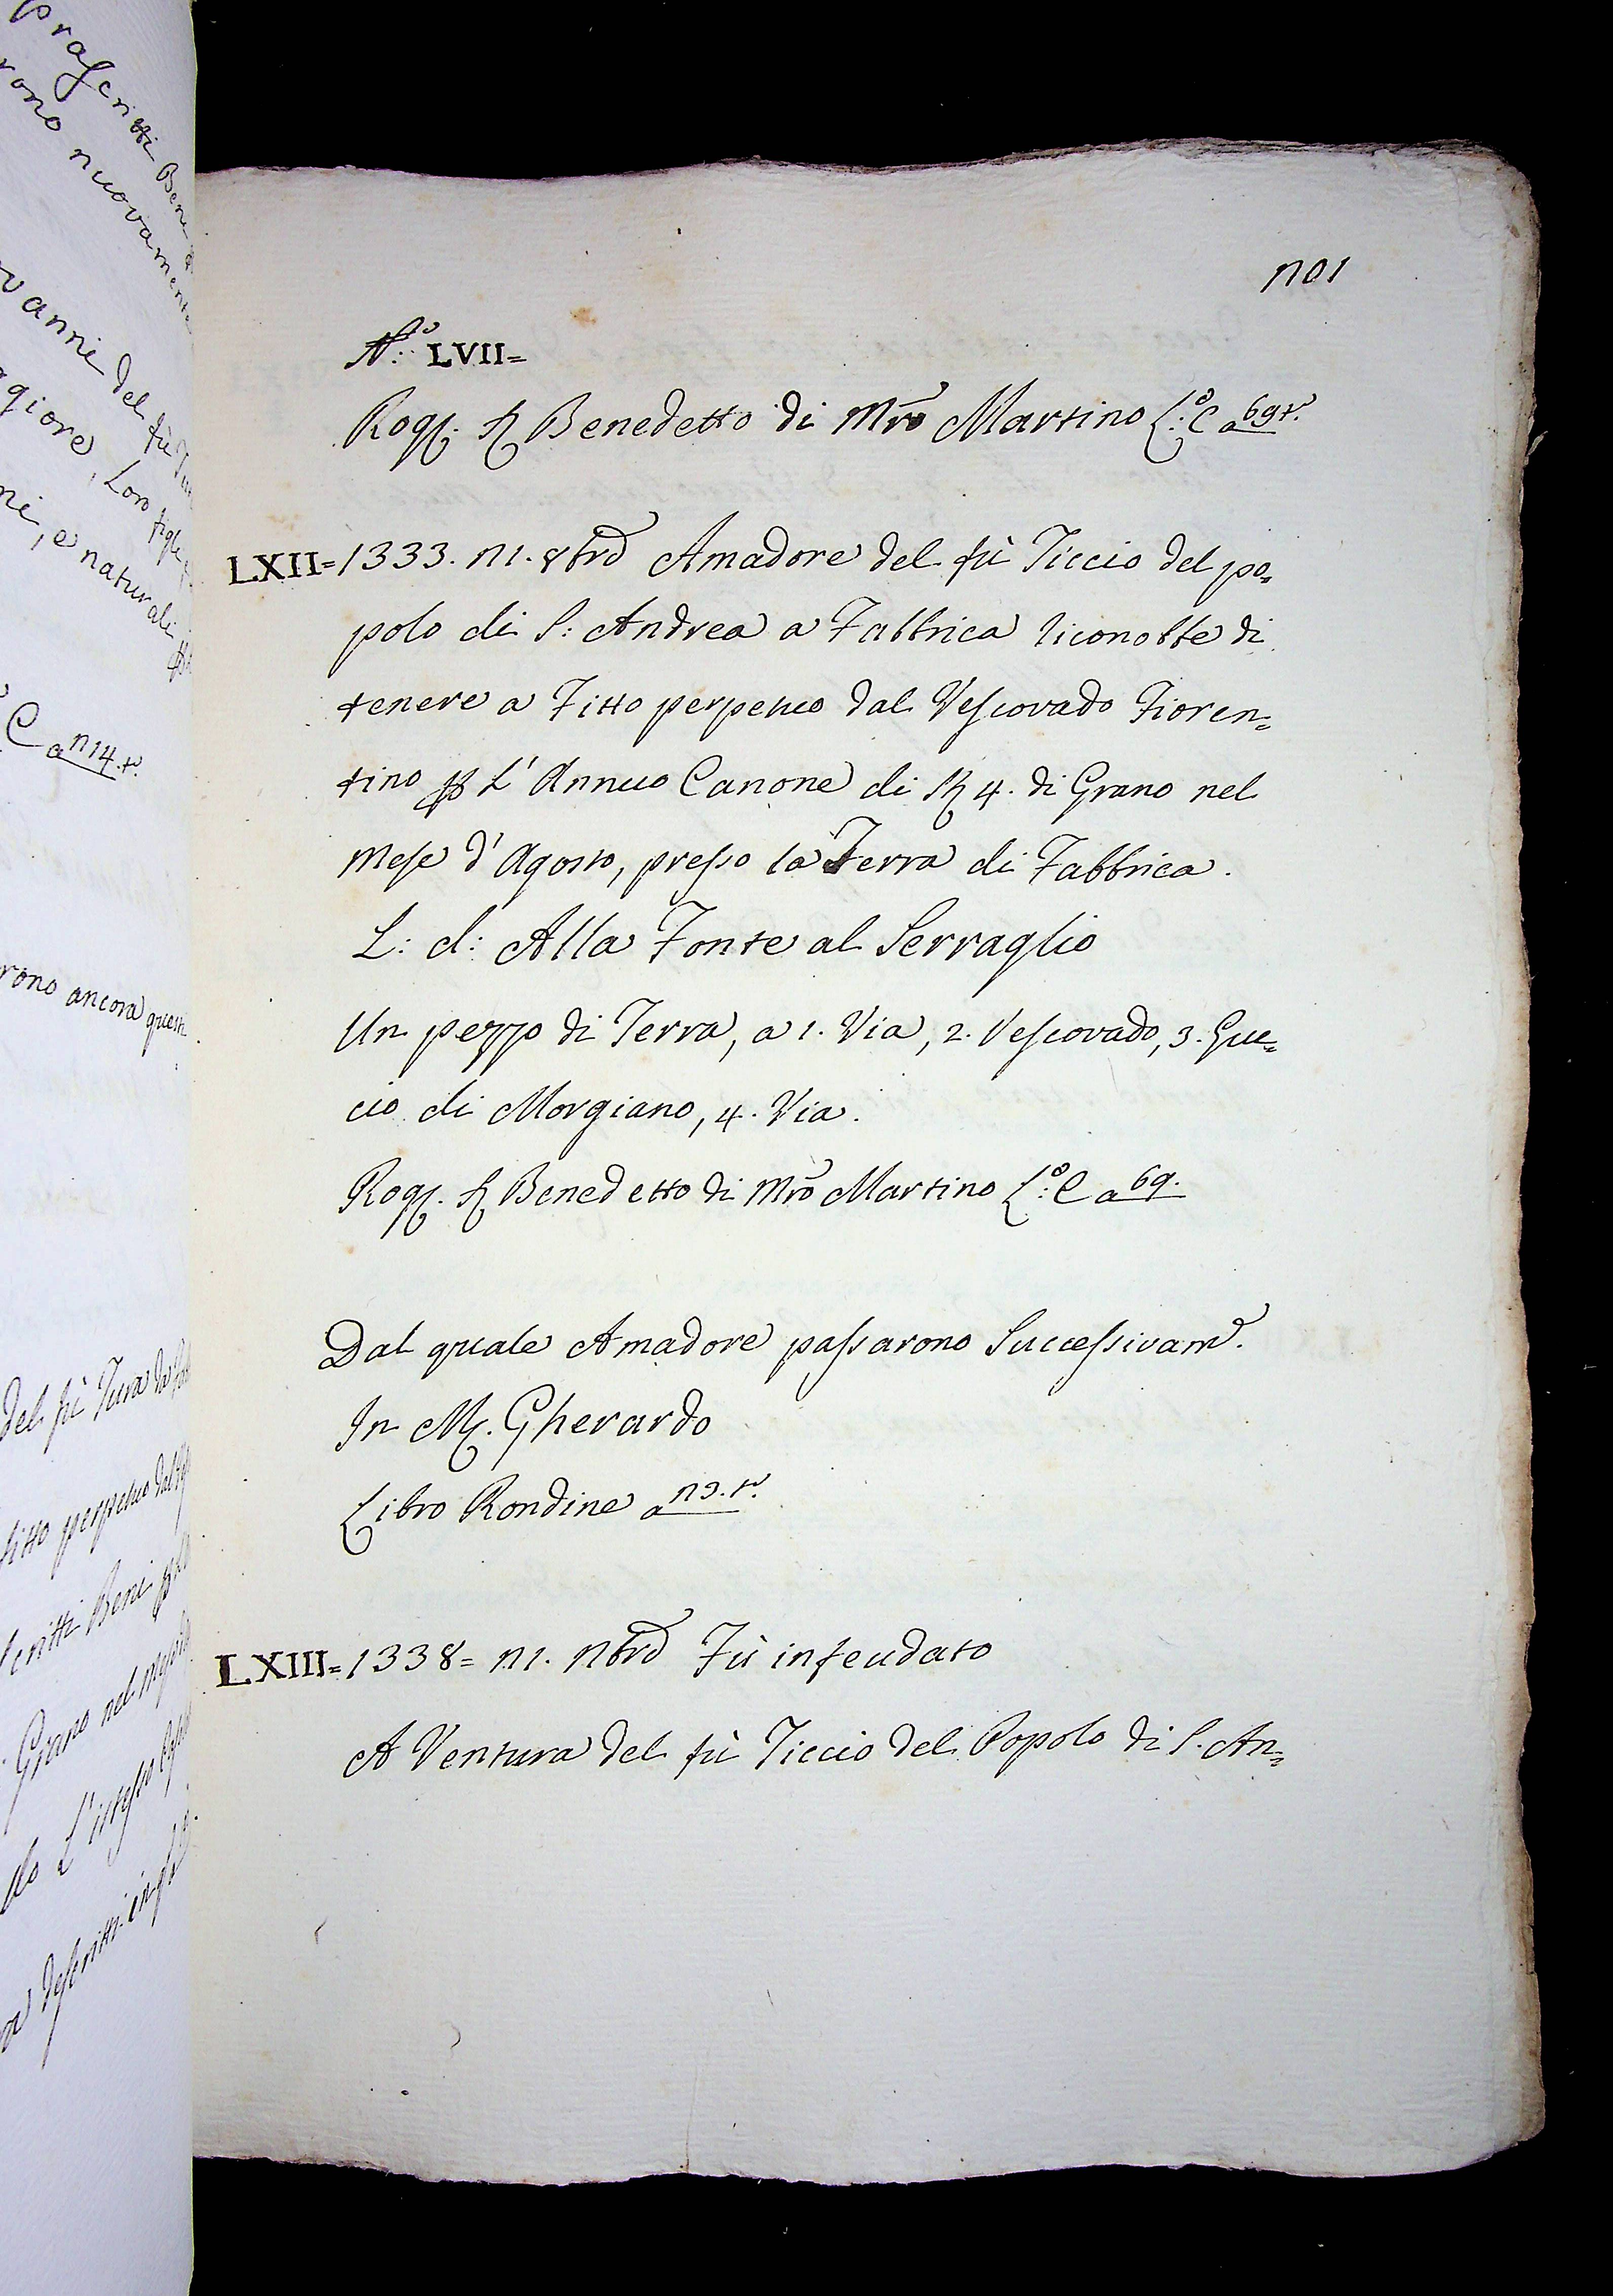 prascritti Beni
rono nuovamente
vanni del fù
ggiore, Loro figli
ni, e naturali
C a 114. t.
rono ancora questi
del fù Tura da
fitto perpetuo dal
scritti Beni
Grano nel mese
do L'istesso
descritti in
1101
N.º: LVII=
Rog. S. Benedetto di Mrõ Martino L.º: C a 69 t.
LXII= 1333. 11. 8brẽ Amadore del fù Ticcio del po=
polo di S: Andrea a Fabbrica riconobbe di
tenere a Fitto perpetuo dal Vescovado Fioren=
tino p L' Annuo Canone di St 4. di Grano nel
Mese d' Agosto, presso la Terra di Fabbrica.
L: d: Alla Fonte al Serraglio
Un pezzo di Terra, a 1. Via, 2. Vescovado, 3. Guc=
cio di Morgiano, 4. Via.
Rog. S. Benedetto di Mrõ Martino L.º: C a 69.
Dal quale Amadore passarono Successivamẽ.
In M. Gherardo
Libro Rondine a 119. t.
LXIII= 1338= 11. Nbrẽ Fù infeudato
A Ventura del fù Ticcio del Popolo di S. An=